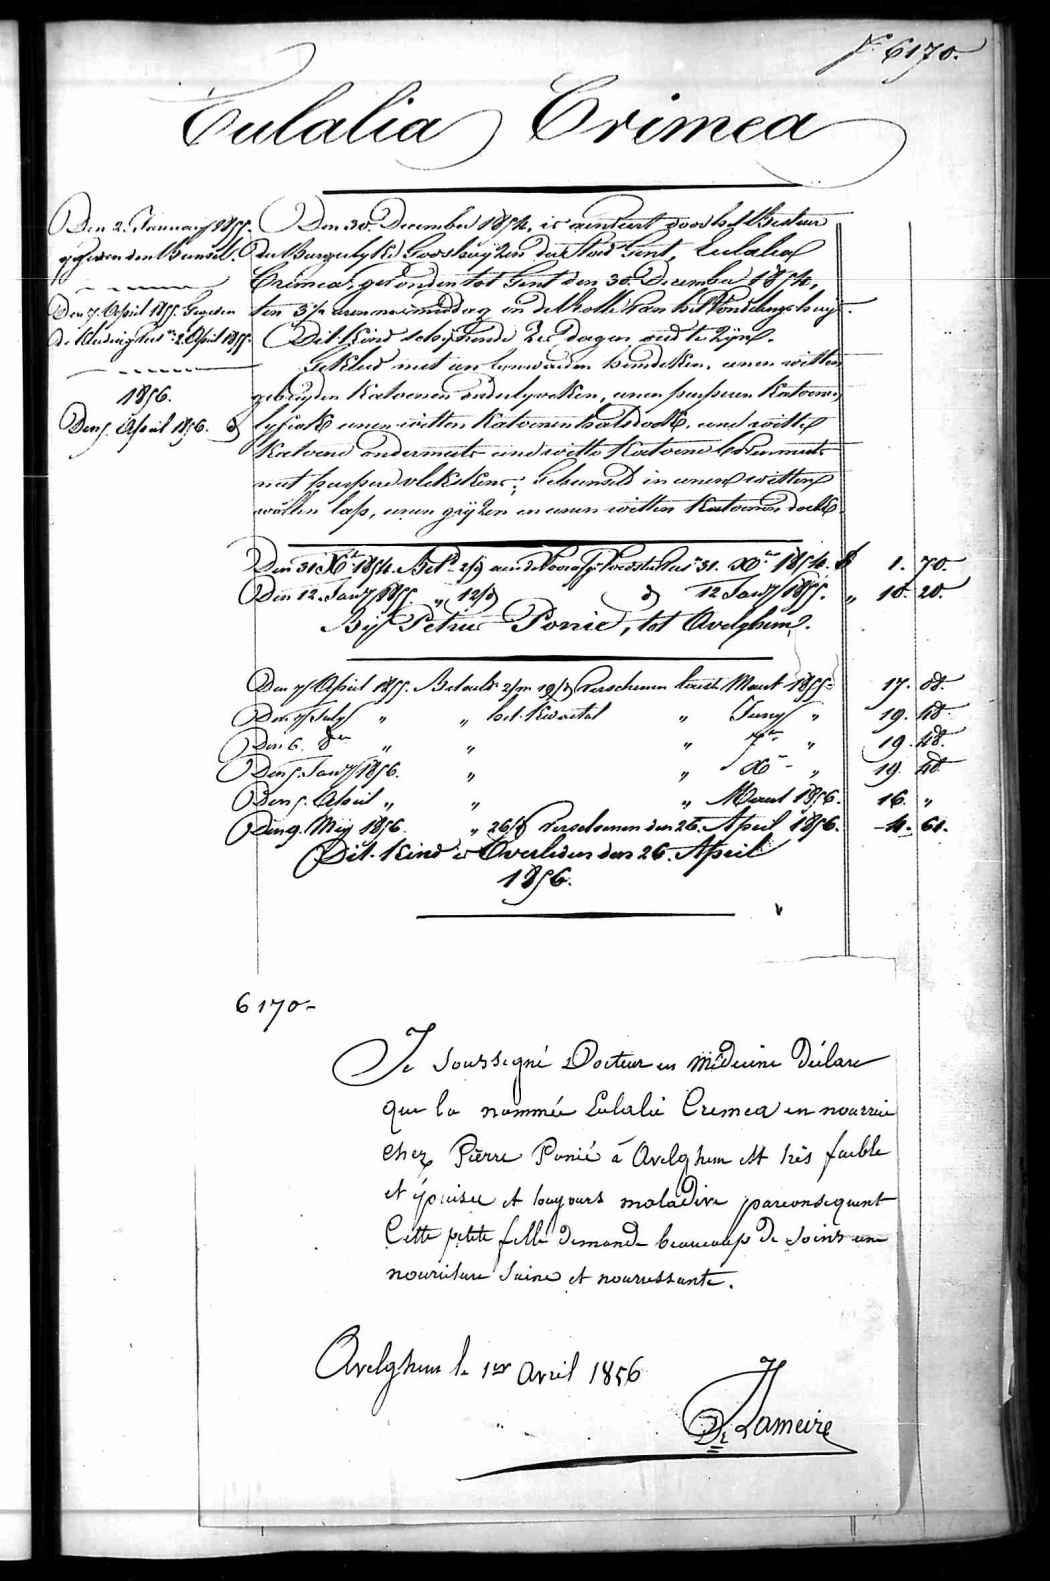 N° 6170.
Eulalia Crimea
Den 2. January 1855.
gegeven den Bunsel.
Den 7. April 1855. Gegeven
de Kleeding Lit. 2. April 1855.
1856.
Den 5. April 1856. d°
Den 30. December 1854, is aenveert door het Bestuer
der Burgerlyke Godshuyzen der Stad Gent, Eulalia
Crimea, gevonden tot Gent den 30. December 1854,
ten 3½ uren namiddag in de Rolle van het Vondelingshuys.
Dit Kind schynende dagen oud te zyn.
Gekleed met een lynwaeden hemdeken, eenen witten
gebreyden Katoenen onderlyveken, eenen purperen Katoenen
lyfrok eenen witten Katoenen halsdoek, eene witte
Katoene ondermuts eene witte Katoene bovenmuts
met purpere vlekskens; Gebunseld in eenen witten
wollen lap, eenen gryzen en eenen witten Katoenen doek.
Den 31 Xber 1854. Betd 2/d aen de Voorgst 31. Xber 1854. f 1. 70.
Den 12. Jany 1855. „ 12/d d° 12 Jany 1855. „ 10. 20.
By Petrus Ponie, tot Avelghem.
Den 7 April 1855. Betaeld 2/m 19/d verschenen laest Maert 1855 17. 08.
Den 7 July „ „ het Kwartael „ Juny „ 19. 48.
Den 6. 8ber „ „ „ 7ber „ 19. 48.
Den 5. Jany 1856. „ „ Xber „ 19. 48.
Den 5. April „ „ „ Maert 1856. 16. „
Den 9. Mey 1856. „ 26/d verschenen den 26. April 1856. 4. 61.
Dit Kind is Overleden den 26. April
1856.
6170-
Je soussigné Docteur en Médecine déclare
que la nommée Eulalie Cremea en nourrice
chez Pierre Ponié à Avelghem est très faible
et épuisée et toujours maladive parconsequent
Cette petite fille demande beaucoup de soins une
nourriture saine et nourrissante.
Avelghem le 1er Avril 1856
Dr Lameire